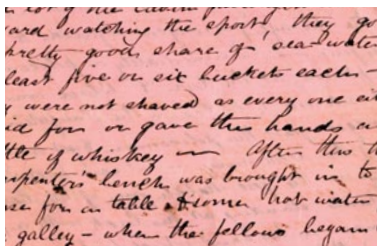 a lot of the cabin
ard watching the sport they go
pretty good share of sea-water
least five or six buckets each -
y were not shaved as every one ei
id for or gave the hands a
ttle of whiskey — After this th
rpenter's bench was brought in to
se for a table & some hot water
galley - when the fellows began